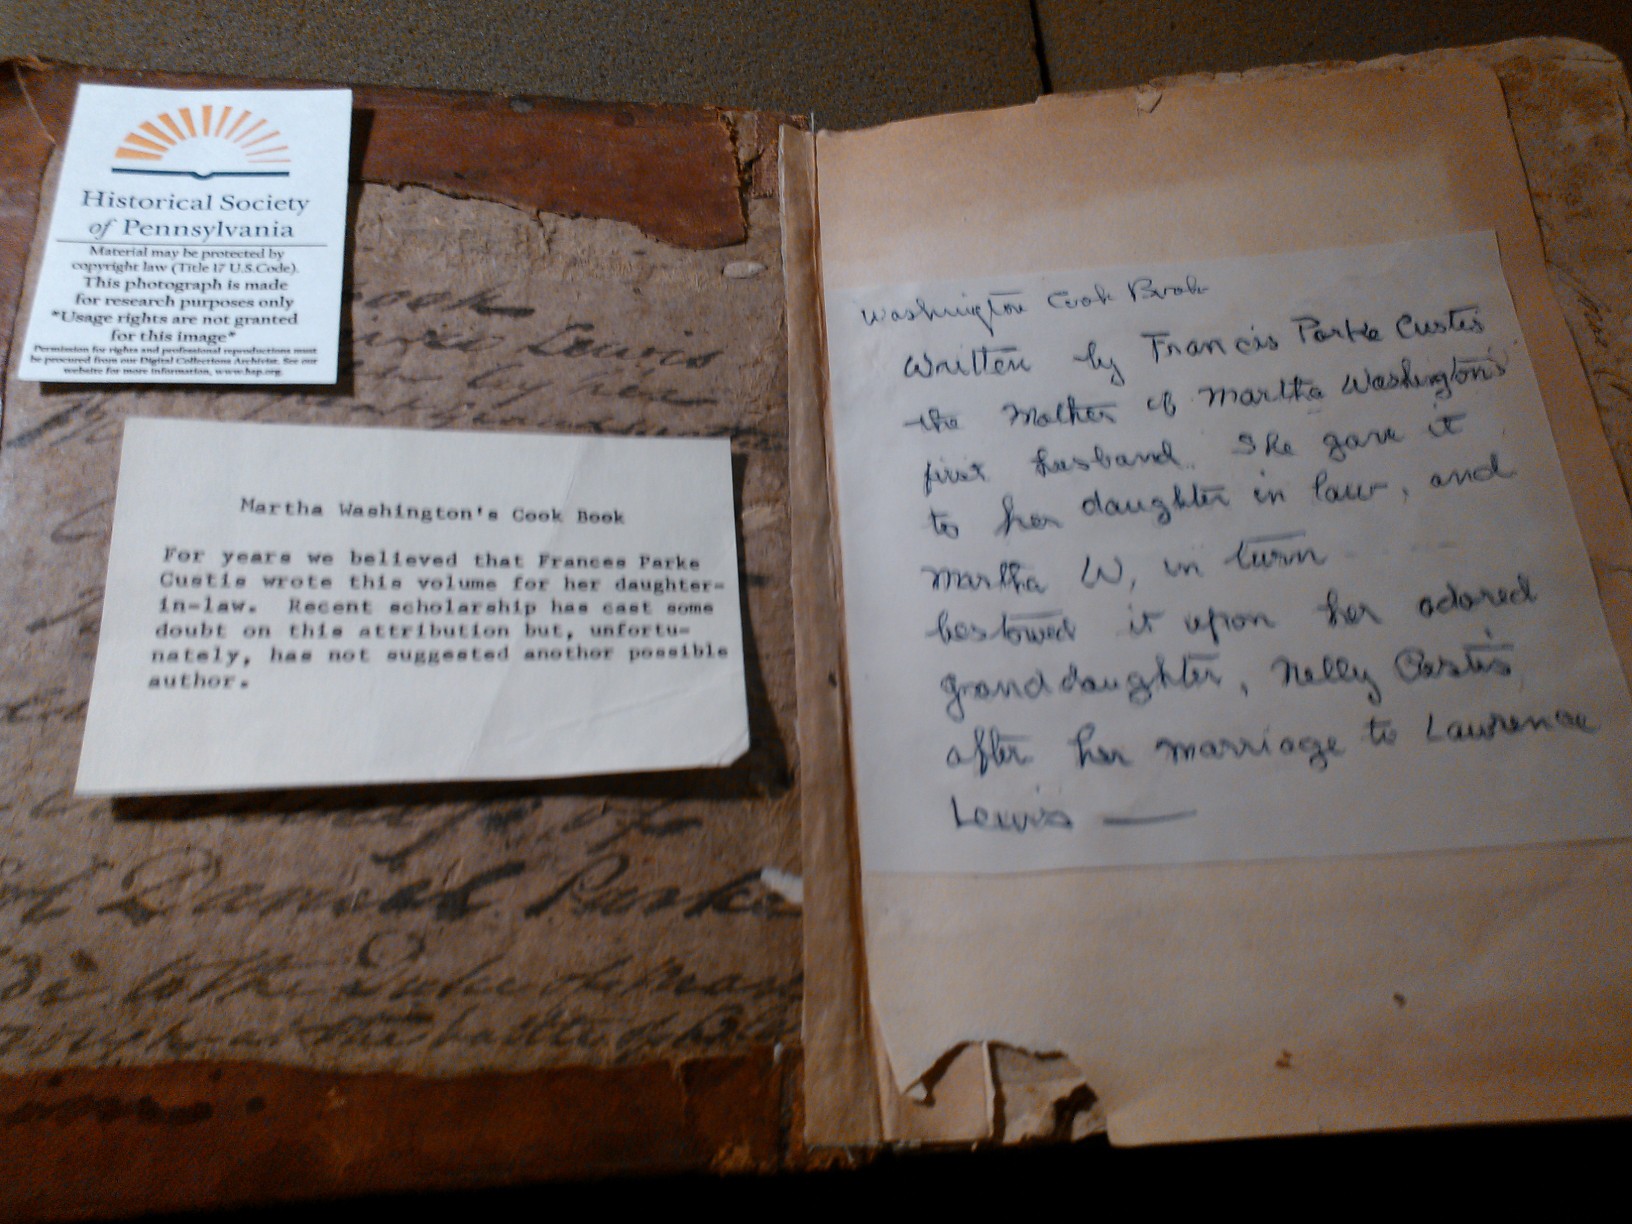 Historical Society
of Pennsylvania
Material may be protected by
copyright law (Title 17 U.S.Code).
This photograph is made
for research purposes only
*Usage rights are not granted
for this image*
Permission for rights and professional reproductions must
be procured from our Digital Collections Archivist. See our
website for more information, www.hsp.org.
Lewis
by her
Martha Washington's Cook Book
For years we believed that Frances Parke
Custis wrote this volume for her daughter-
in-law. Recent scholarship has cast some
doubt on this attribution but, unfortu-
nately, has not suggested another possible
author.
of
Daniel Parke
to the Duke of
at the battle of
Washington Cook Book
Written by Francis Parke Custis
the Mother of Martha Washington's
first husband. She gave it
to her daughter in law, and
Martha W, in turn
bestowed it upon her adored
granddaughter, Nelly Custis
after her marriage to Lawrence
Lewis —